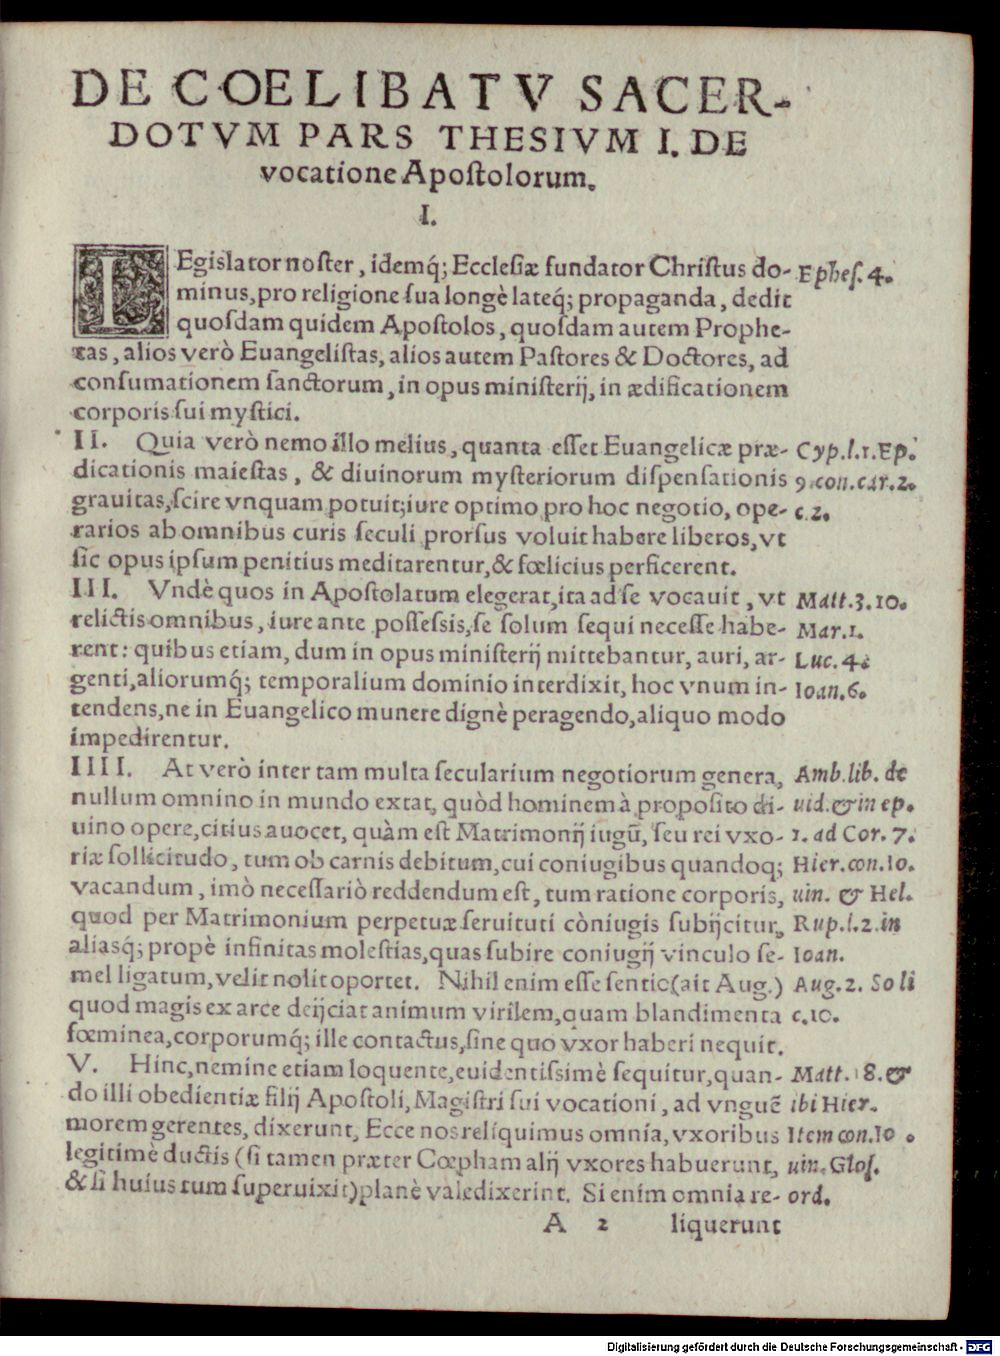 DE COELIBATV SACER-
DOTVM PARS THESIVM I. DE
vocatione Apoſtolorum.
I.
LEgiſlator noſter, idemq́; Eccleſiæ fundator Chriſtus do- Epheſ. 4.
minus, pro religione ſua longè lateq́; propaganda, dedit
quoſdam quidem Apoſtolos, quoſdam autem Prophe-
tas, alios verò Euangeliſtas, alios autem Paſtores & Doctores, ad
conſumationem ſanctorum, in opus miniſterij, in ædificationem
corporis ſui myſtici.
II. Quia verò nemo illo melius, quanta eſſet Euangelicæ præ- Cyp. l. 1. Ep.
dicationis maieſtas, & diuinorum myſteriorum diſpenſationis 9. con. car. 2.
grauitas, ſcire vnquam potuit; iure optimo pro hoc negotio, ope- c. 2.
rarios ab omnibus curis ſeculi prorſus voluit habere liberos, vt
ſic opus ipſum penitius meditarentur, & fœlicius perficerent.
III. Vndè quos in Apoſtolatum elegerat, ita ad ſe vocauit, vt Matt. 3. 10.
relictis omnibus, iure ante poſſeſsis, ſe ſolum ſequi neceſſe habe- Mar. 1.
rent: quibus etiam, dum in opus miniſterij mittebantur, auri, ar- Luc. 4.
genti, aliorumq́; temporalium dominio interdixit, hoc vnum in- Ioan. 6.
tendens, ne in Euangelico munere dignè peragendo, aliquo modo
impedirentur.
IIII. At verò inter tam multa ſecularium negotiorum genera, Amb. lib. de
nullum omnino in mundo extat, quòd hominem à propoſito di- uid. & in ep.
uino opere, citius auocet, quàm eſt Matrimonij iugū, ſeu rei vxo- 1. ad Cor. 7.
riæ ſollicitudo, tum ob carnis debitum, cui coniugibus quandoq; Hier. con. Io.
vacandum, imò neceſſariò reddendum eſt, tum ratione corporis, uin. & Hel.
quod per Matrimonium perpetuæ ſeruituti còniugis ſubijcitur, Rup. l. 2. in
aliasq́; propè infinitas moleſtias, quas ſubire coniugij vinculo ſe- Ioan.
mel ligatum, velit nolit oportet. Nihil enim eſſe ſentio (ait Aug.) Aug. 2. Soli
quod magis ex arce deijciat animum virilem, quam blandimenta c. 10.
fœminea, corporumq́; ille contactus, ſine quo vxor haberi nequit.
V. Hinc, nemine etiam loquente, euidentiſsimè ſequitur, quan- Matt. 18. &
do illi obedientiæ filij Apoſtoli, Magiſtri ſui vocationi, ad vnguē ibi Hier.
morem gerentes, dixerunt, Ecce nos reliquimus omnia, vxoribus Item con. Io.
legitimè ductis (ſi tamen præter Cœpham alij vxores habuerunt, uin. Gloſ.
& ſi huius tum ſuperuixit) planè valedixerint. Si enim omnia re- ord.
A 2 liquerunt
Digitalisierung gefördert durch die Deutsche Forschungsgemeinschaft - DFG